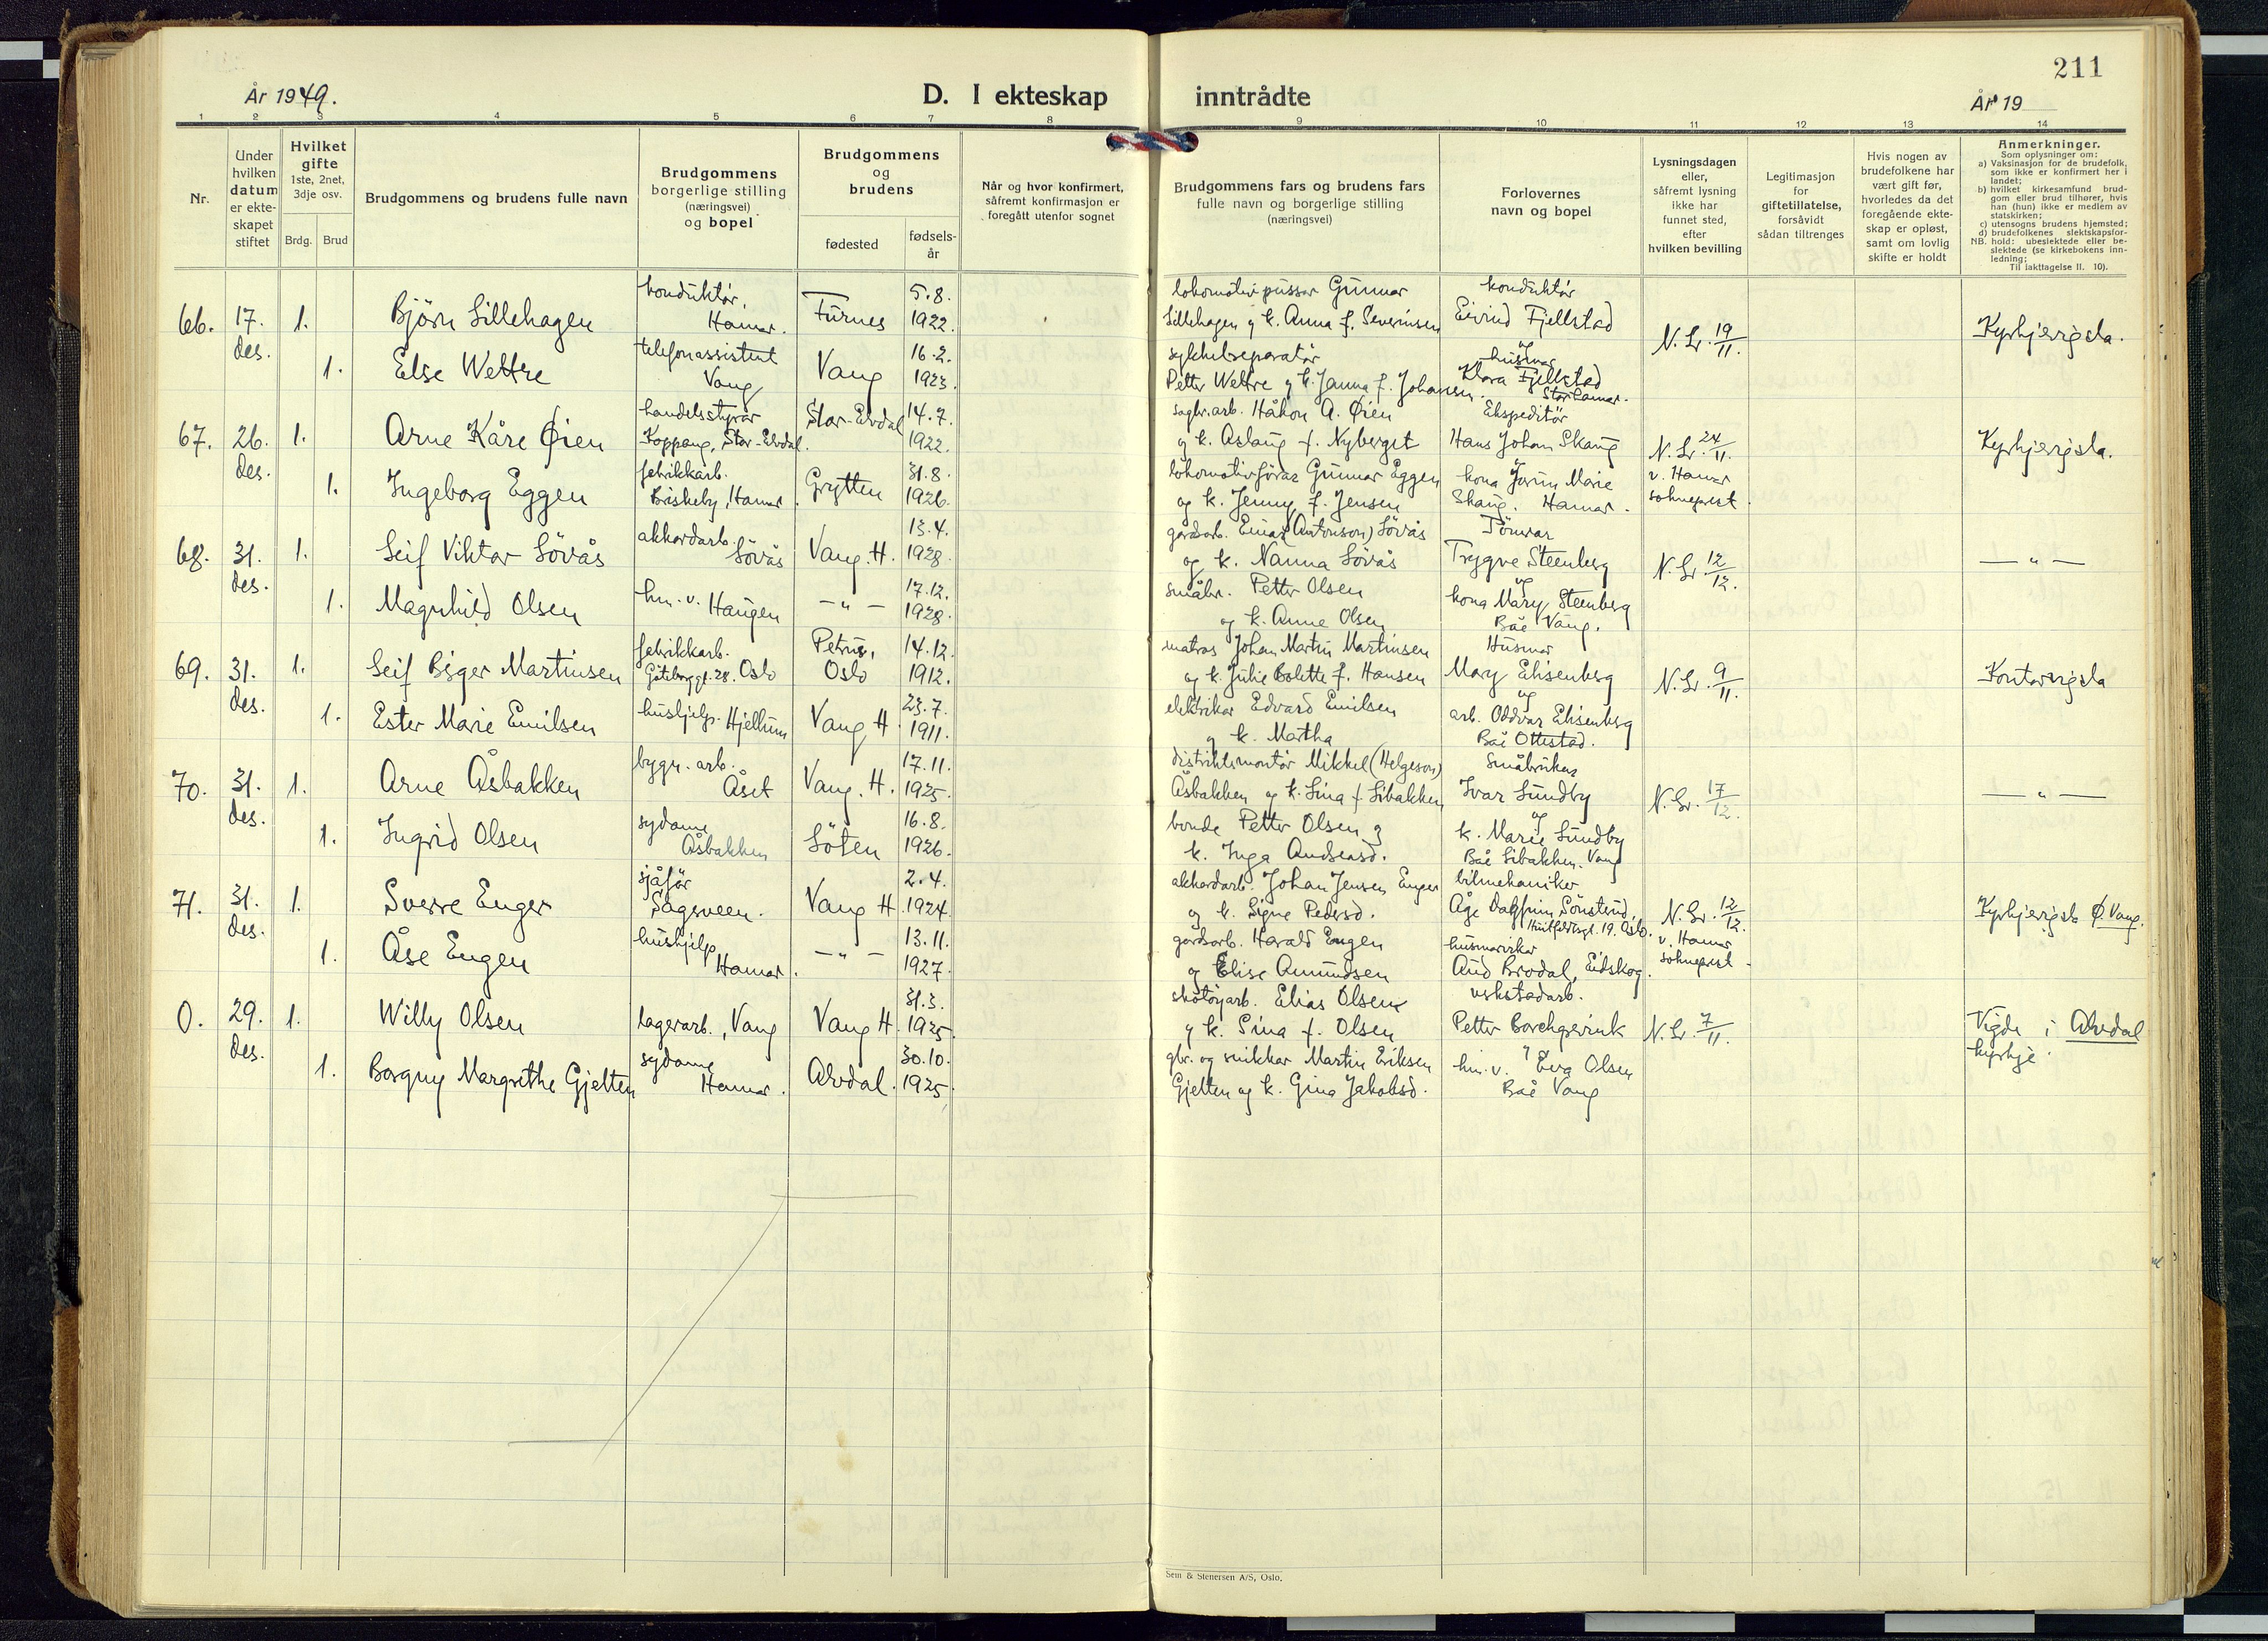 211
År 1949.
D. I ekteskap inntrådte
År 19
1 2 3 4 5 6 7 8 9 10 11 12 13 14
Nr.
Under hvilken datum er ekte-skapet stiftet
Hvilket gifte 1ste, 2net, 3dje osv.
Brdg. Brud
Brudgommens og brudens fulle navn
Brudgommens borgerlige stilling (næringsvei) og bopel
Brudgommens og brudens
fødested
fødsels-år
Når og hvor konfirmert, såfremt konfirmasjon er foregått utenfor sognet
Brudgommens fars og brudens fars fulle navn og borgerlige stilling (næringsvei)
Forlovernes navn og bopel
Lysningsdagen eller, såfremt lysning ikke har funnet sted, efter hvilken bevilling
Legitimasjon for giftetillatelse, forsåvidt sådan tiltrenges
Hvis nogen av brudefolkene har vært gift før, hvorledes da det foregående ekte-skap er opløst, samt om lovlig skifte er holdt
Anmerkninger.
Som oplysninger om:
a) Vaksinasjon for de brudefolk, som ikke er konfirmert her i landet;
b) hvilket kirkesamfund brud-gom eller brud tilhører, hvis han (hun) ikke er medlem av statskirken;
c) utensogns brudens hjemsted;
d) brudefolkenes slektskapsfor-hold: ubeslektede eller be-slektede (se kirkebokens inn-ledning;
NB.
Til iakttagelse II. 10).
66. 17. des. 1. Björn Lillehagen konduktör, Hamar. Furnes 5.8. 1922. lokomotivpussar Gunnar Lillehagen og k. Anna f. Severinsen konduktör Eivind Fjellstad N. Lr. 19/11. Kyrkjevigsla.
1. Else Wettre telefonassistent Vang Vang 16.2. 1923. sykkelreparatör Petter Wettre og k. Janna f. Johansen. og husmor Klara Fjellstad Storhamar.
67. 26. des. 1. Arne Kåre Øien handelsstyrar Koppang, Stor-Elvdal. Stor-Elvdal 14.7. 1922. sagbr.arb. Håkon A. Øien og k. Aslaug f. Nyberget Ekspeditör Hans Johan Skaug N. Lr. 24/11. v. Hamar sokneprest. Kyrkjevigsla.
1. Ingeborg Eggen fabrikkarb. Briskeby, Hamar. Grytten 31.8. 1926. lokomotivförar Gunnar Eggen og k. Jenny f. Jensen og kona Jorun Marie Skaug. Hamar.
68. 31. des. 1. Leif Viktor Lövås akkordarb. Lövås Vang. H. 13.4. 1928. gardsarb. Einar (Antonson) Lövås og k. Nanna Lövås Tömrar Trygve Steenberg N. Lr. 12/12. — " —
1. Magnhild Olsen hm. v. Haugen — " — 17.12. 1928. småbr. Petter Olsen og k. Anne Olsen og kona Mary Steenberg Båe Vang.
69. 31. des. 1. Leif Biger Martinsen fabrikkarb. Göteborggt. 28. Oslo Petrus, Oslo 14.12. 1912. matros Johan Martin Martinsen og k. Julie Bolette f. Hansen Husmor Mary Elisenberg N. Lr. 9/11. Kontorvigsla
1. Ester Marie Emilsen hushjelp. Hjellum Vang H 23.7. 1911. elektrikar Edvard Emilsen og k. Martha og arb. Oddvar Elisenberg Båe Ottestad.
70. 31. des. 1. Arne Åsbakken bygn. arb. Åset Vang. H. 17.11. 1925. distriktsmontör Mikkel (Helgeson) Åsbakken og k. Lina f. Libakken Småbrukar Ivar Lundby N. Lr. 17/12. — " —
1. Ingrid Olsen sydame Åsbakken Löten 16.8. 1926. bonde Petter Olsen og k. Inga Andreasd. og k. Marie Lundby Båe Libakken. Vang
71. 31. des. 1. Sverre Enger sjåför Sagsveen. Vang H 2.4. 1924. akkordarb. Johan Jensen Enger og k. Signe Pedersd. bilmekaniker Åge Dagfinn Sönsterud, Huitfeldtsgt. 19. Oslo. N. Lr. 12/12. v. Hamar sokneprest. Kyrkjevigsla Ø. Vang.
1. Åse Engen hushjelp Hamar. — " — 13.11. 1927. gardsarb. Harald Engen og Elise Amundsen husmorvikar Aud Brodal, Eidskog.
0. 29. des. 1. Willy Olsen lagerarb., Vang Vang H. 31.3. 1925. skotöyarb. Elias Olsen og k. Sina f. Olsen verkstadarb. Petter Borchgrevink N. Lr. 7/11. Vigde i Alvdal kyrkje.
1. Borgny Margrethe Gjelten sydame Hamar. Alvdal. 30.10. 1925. gbr. og snikkar Martin Eriksen Gjelten og k. Gina Jakobsd. og hm. v. Eva Olsen Båe Vang
Sem & Stenersen A/S, Oslo.